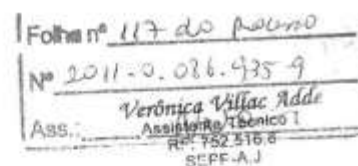 Folha nº 117 do processo
Nº 2011-0.086.935-9
Verônica Villac Adde
Ass.: Assistente Técnico I
RF: 752.516.6
SEPF-A.J